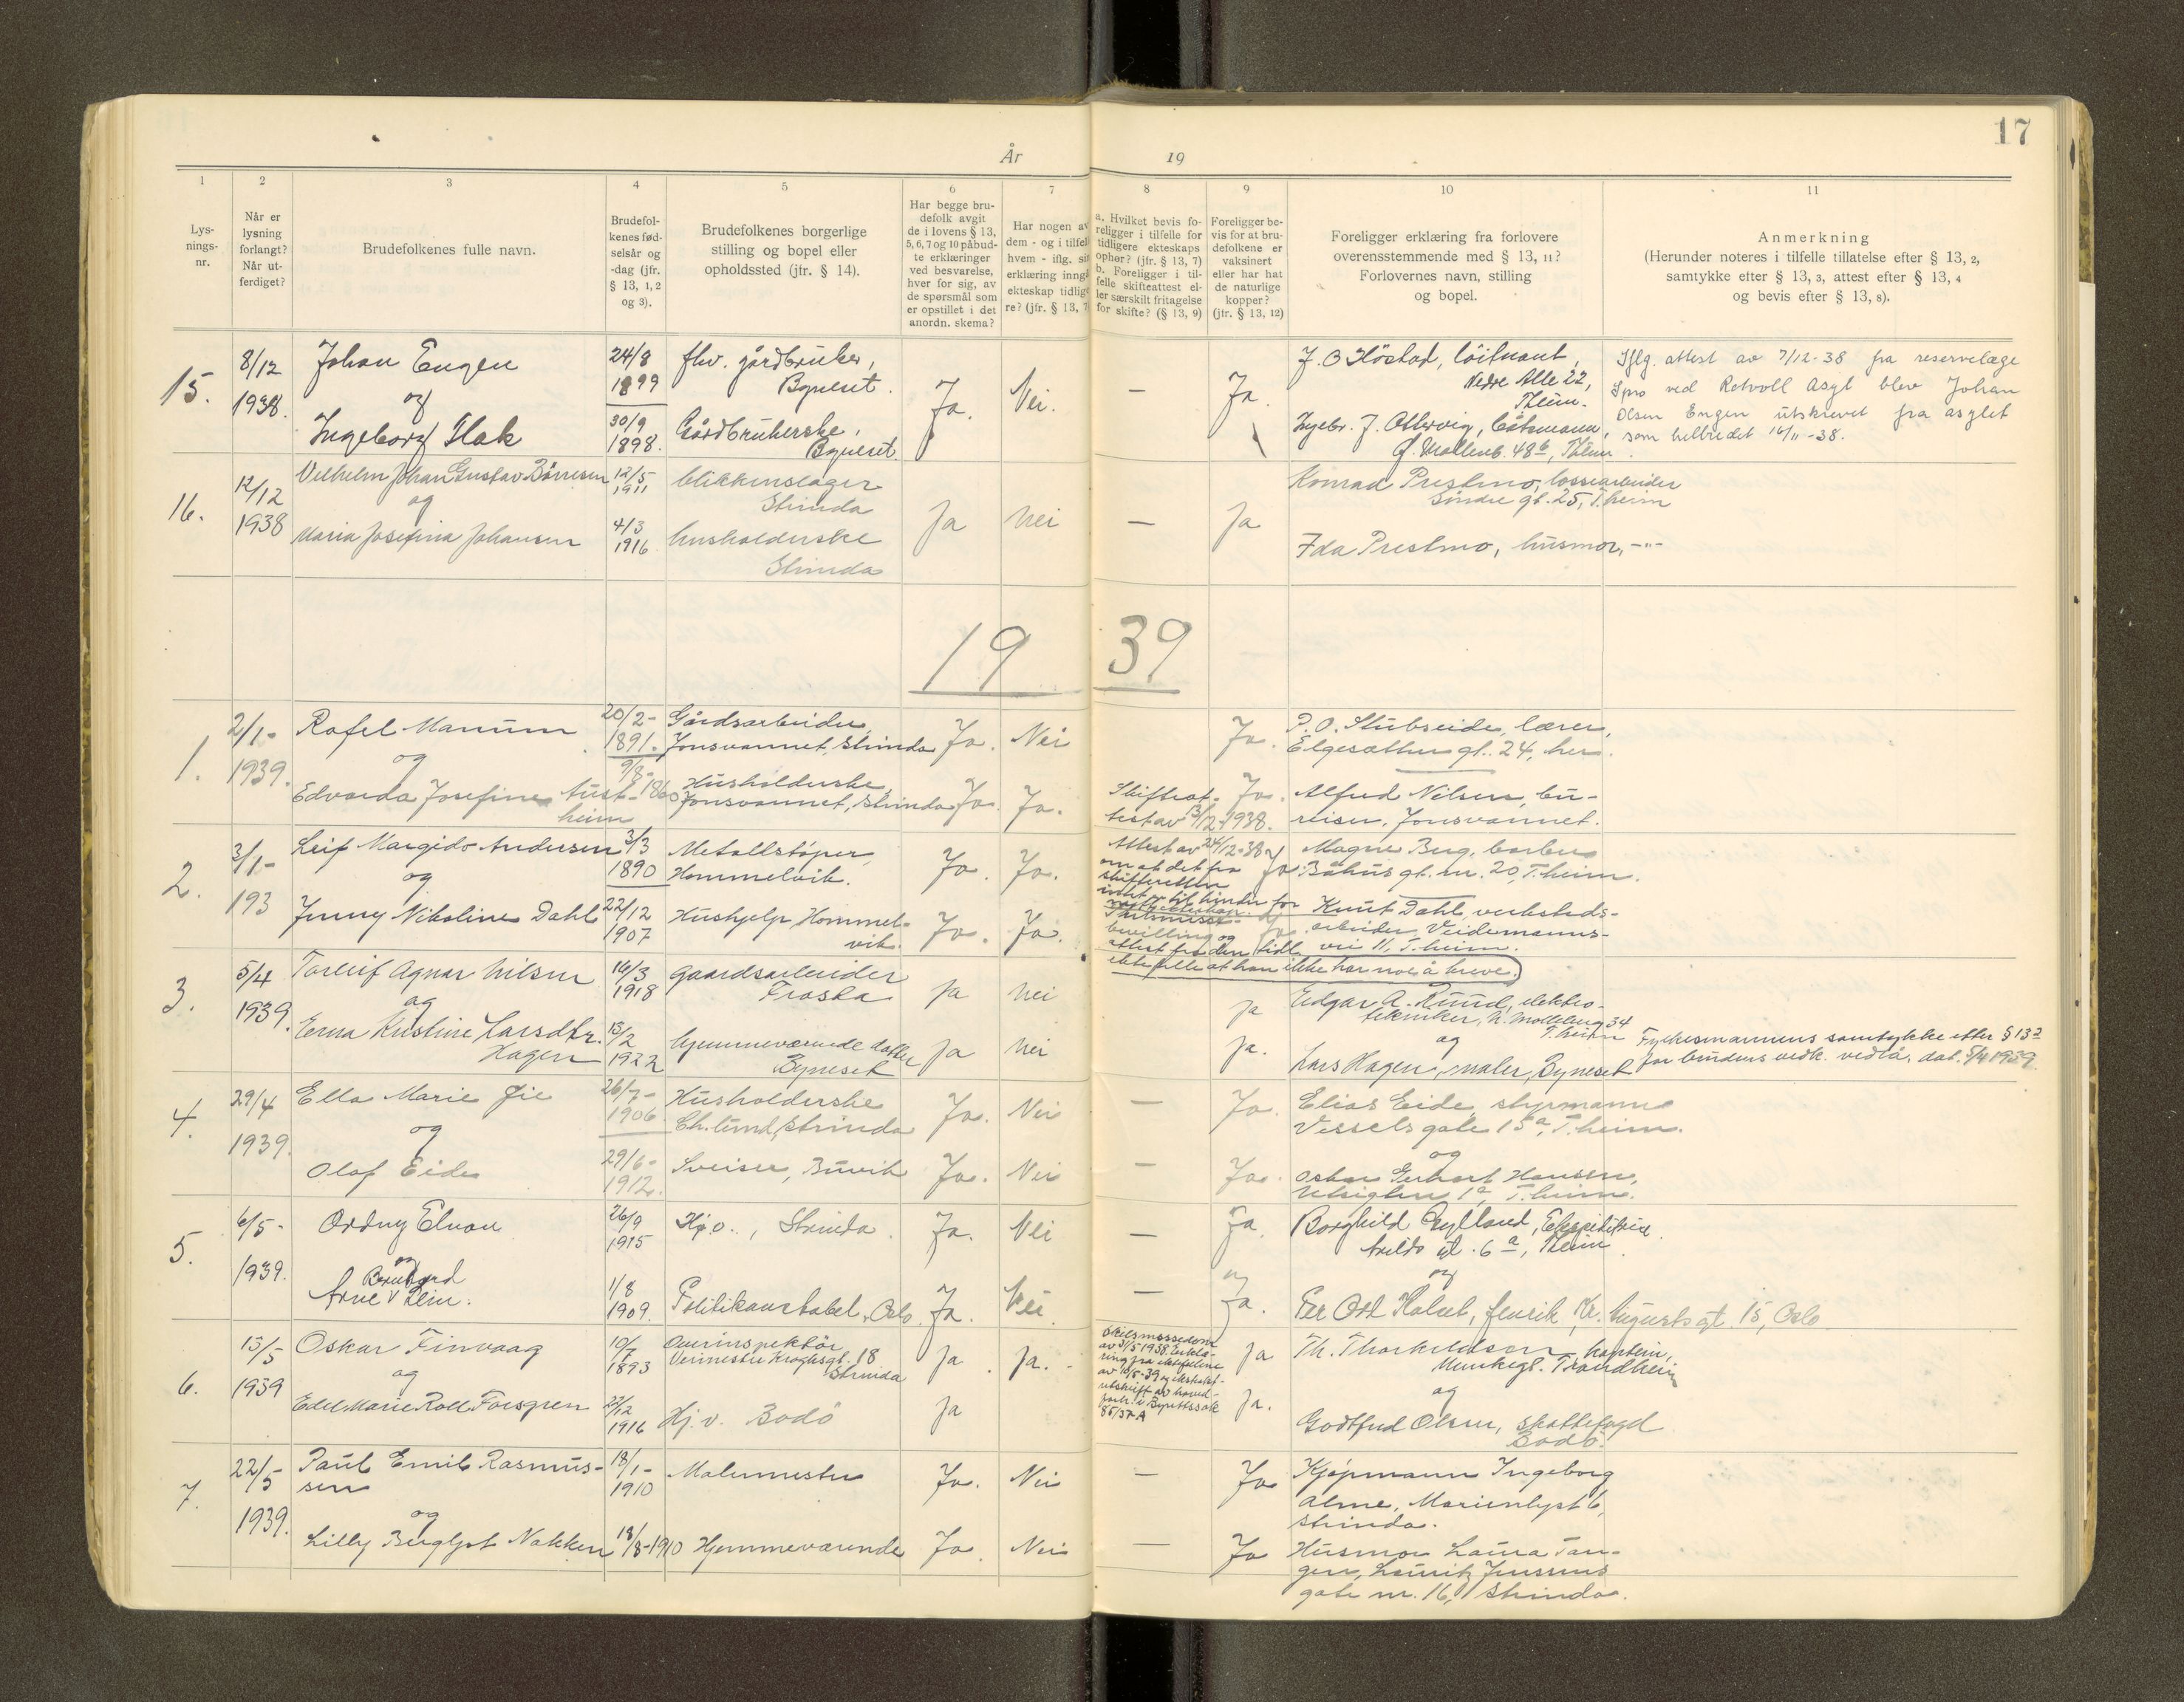 17
År 19
1
Lys-
nings-
nr.
2
Når er
lysning
forlangt?
Når ut-
ferdiget?
3
Brudefolkenes fulle navn.
4
Brudefol-
kenes fød-
selsår og
-dag (jfr.
§ 13, 1, 2
og 3).
5
Brudefolkenes borgerlige
stilling og bopel eller
opholdssted (jfr. § 14).
6
Har begge bru-
defolk avgit
de i lovens § 13,
5, 6, 7 og 10 påbud-
te erklæringer
ved besvarelse,
hver for sig, av
de spørsmål som
er opstillet i det
anordn. skema?
7
Har nogen av
dem - og i tilfel
hvem - iflg. si
erklæring inngå
ekteskap tidlig
re? (jfr. § 13, 7
8
a. Hvilket bevis fo-
religger i tilfelle for
tidligere ekteskaps
ophør? (jfr. § 13, 7)
b. Foreligger i til-
felle skifteattest el-
ler særskilt fritagelse
for skifte? (§ 13, 9)
9
Foreligger be-
vis for at bru-
defolkene er
vaksinert
eller har hat
de naturlige
kopper?
(jfr. § 13, 12)
10
Foreligger erklæring fra forlovere
overensstemmende med § 13, 11?
Forlovernes navn, stilling
og bopel.
11
Anmerkning
(Herunder noteres i tilfelle tillatelse efter § 13, 2,
samtykke efter § 13, 3, attest efter § 13, 4
og bevis efter § 13, 8).
15.
8/12
1938.
Johan Engen
og
Ingeborg Hak
24/8
1899
30/9
1898.
fhv. gårdbruker,
Byneset.
Gårdbrukerske,
Byneset.
Ja.
Nei.
—
Ja.
J. O Höstad, löitnant,
Nedre Alle 22,
Thlm.
Ingebr. J.
Ø. Mollenb. 48b, Thlm.
Iflg. attest av 7/12-38 fra reservelæge
ved Rotvoll Asyl blev Johan
Olsen Engen utskrevet fra asylet
som helbredet 16/11-38.
16.
12/12
1938
Vilhelm Johan Gustav Börresen
og
Maria Josefina Johansen
12/5
1911
4/3
1916
blikkenslager
Strinda
husholderske
Strinda
Ja
Nei
—
Ja
Konrad Prestmo, lossearbeider
Söndre gt. 25, T.heim
Ida Prestmo, husmor, -"-
19 39
1.
2/1-
1939.
Rafel Manum
og
Edvarda Josefine Aust-
heim
20/2-
1891.
9/8-
1860
Gårdsarbeider,
Jonsvannet, Strinda
Husholderske,
Jonsvannet, Strinda
Ja. Nei
Ja. Ja.
Skifteat-
test av 13/12-1938.
Ja.
Ja.
P. O. Stubseide, lærer,
Elgesæther gt. 24, her.
Alfred Nilsen, bu-
reiser, Jonsvannet.
2.
3/1-
193
Leif Margido Andersen
og
Jenny Nikoline Dahl
3/3
1890
22/12
1907
Metallstøper,
Hommelvik.
Hushjelp, Hommel-
vik.
Ja. Ja.
Ja. Ja.
Attest av 24/12-38
om at det fra
skifteretten
intet er til hinder for
bevilling og
attest fra den tidl.
ektefelle at han ikke har noe å kreve.
Ja
Ja
Magne Berg, barber
Båhus gt. nr. 20, T.heim.
Knut Dahl, verksteds-
arbeider, Veidemanns-
vei 11, T.heim.
3.
5/4
1939.
Torleif Agnar Nilsen
og
Erna Kristine Larsdtr.
Hagen
16/3
1918
13/2
1922
gaardsarbeider
Frosta
hjemmeværende datter
Byneset
Ja Nei
Ja Nei
Ja
Ja.
Edgar A. Ruud, elektro-
tekniker, N. Mollebeng 34
T.heim
og
Lars Hagen, maler, Byneset
Fylkesmannens samtykke efter § 13 2
for brudens vedk. vedlå, dat. 5/4 1939.
4.
29/4
1939.
Ella Marie Øie
og
Olaf Eide
26/7-
1906.
29/6-
1912.
Husholderske
Ch.lund, Strinda
Sveiser, Buvik
Ja. Nei
Ja. Nei
—
—
Ja.
Ja.
Elias Eide, styrmann
Vessels gate 15a, T.heim.
og
Oskar Gerhart Hansen,
Utsigten 1a, T.heim.
5.
6/5-
1939.
Ordny Elvan
og
Bernhard
Arne V Rein.
26/9
1915
1/8
1909.
Hj.v., Strinda.
Politikonstabel, Oslo
Ja. Nei
Ja. Nei
—
—
Ja.
og
Ja.
Borghild Gylland, Ekspeditrise
Arilds gt. 6a, Theim.
og
Per Ost Halset, fenrik, Kr. Augusts gt. 15, Oslo
6.
15/5
1939
Oskar Finvaag
og
Edel Marie Roll Forsgren
10/7
1893
22/12
1916
Overinspektör
Veimester Kroghsgt. 18
Strinda
Hj.v. Bodö
Ja Ja.-
Ja
Skilsmissedom
av 31/5 1938. Erklæ-
ring fra ektefellene
av 10/5-39 og ekstrakt-
utskrift av hoved-
forh. i Byrettssak
85/37 A
Ja
Ja.
Th. Thorkildsen kaptein,
Munkegt. Trondheim
og
Godtfred Olsen, skattefogd
Bodö.
7.
22/5
1939.
Paul Emil Rasmus-
sen
og
Lilly Bergljot Nakken
18/1-
1910
18/8-1910
Malermester
Hjemmeværende
Ja. Nei
Ja. Nei
—
—
Ja
Ja
Kjøpmann Ingeborg
Alme, Marienlyst 6,
Strinda.
Husmor Laura Tan-
gen, Lauritz Jenssens
gate nr. 16, Strinda.